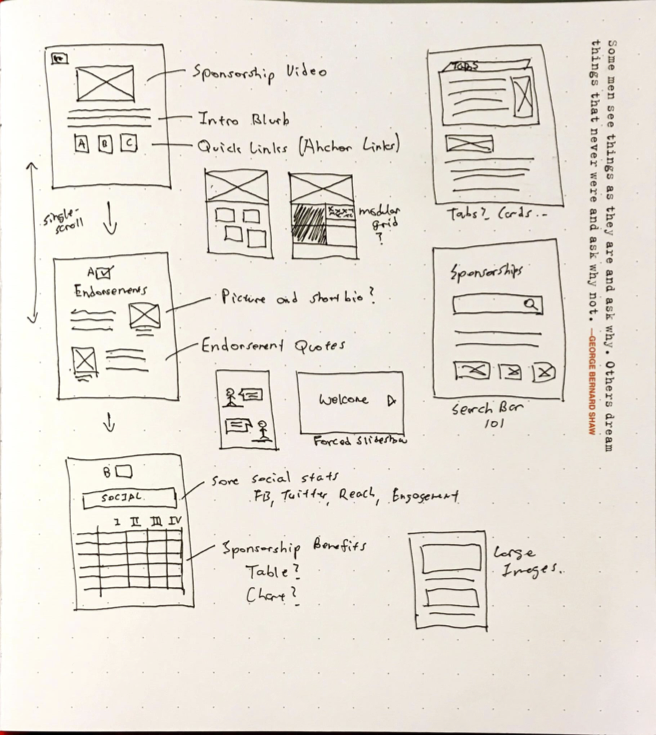 Sponsorship Video
Intro Blurb
A B C
Quick Links (Anchor Links)
single-
scroll
modular
grid
?
A
Endorsements
Picture and short bio?
Endorsement Quotes
Welcome
Forced Slideshow
B
Some social stats
FB, Twitter, Reach, Engagement
SOCIAL
I II III IV
Sponsorship Benefits
Table?
Chart?
TABS
Tabs? Cards...
Sponsorships
Search Bar
101
Large
Images.
Some men see things as they are and ask why. Others dream
things that never were and ask why not. —GEORGE BERNARD SHAW